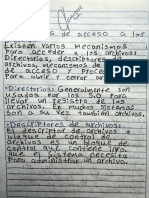 de acceso a los
Existen varios mecanismos
Para acceder a los archivos:
Directorios, descriptores de
archivos, mecanismos de control
de acceso y Procedimientos
Para abrir y cerrar archivos
•Directorios: Generalmente son
usados por los S.O Para
llevar un registro de los
archivos. En muchos sistemas
son a su vez también archivos.
•Descriptores de archivos:
El descriptor de archivos o
bloque de control de
archivos es un bloque
de control que contiene
que el sistema necesita
Para administrar un archivo.